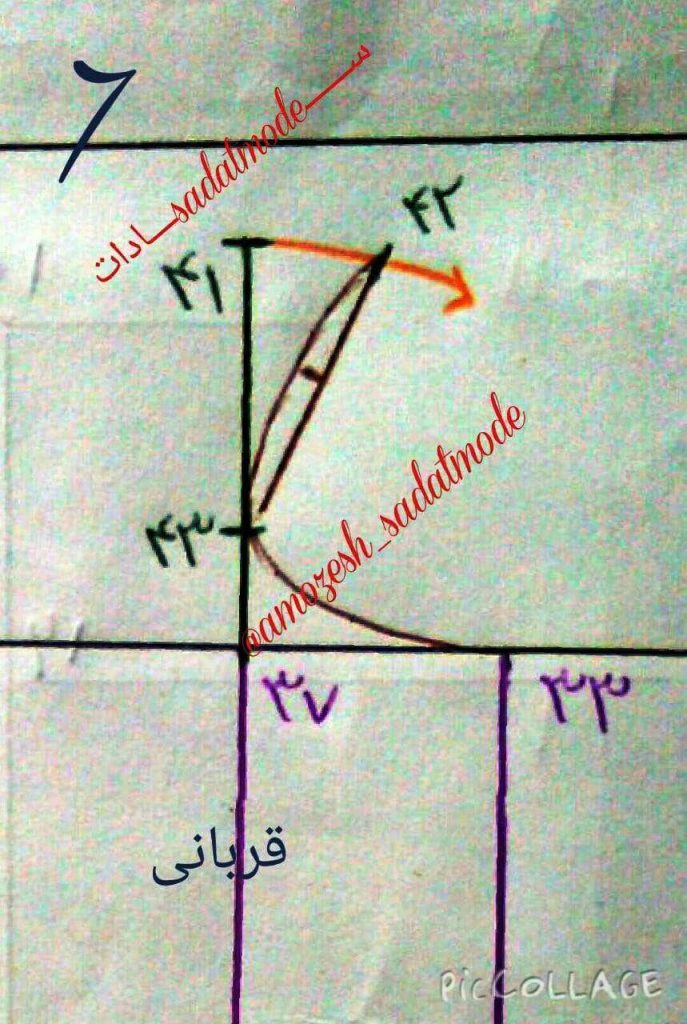 ۶
ســادات_sadatmode_ســ
۴۲
۴۱
@amozesh_sadatmode
۴۳
۳۷
۳۳
قربانی
PicCOLLAGE